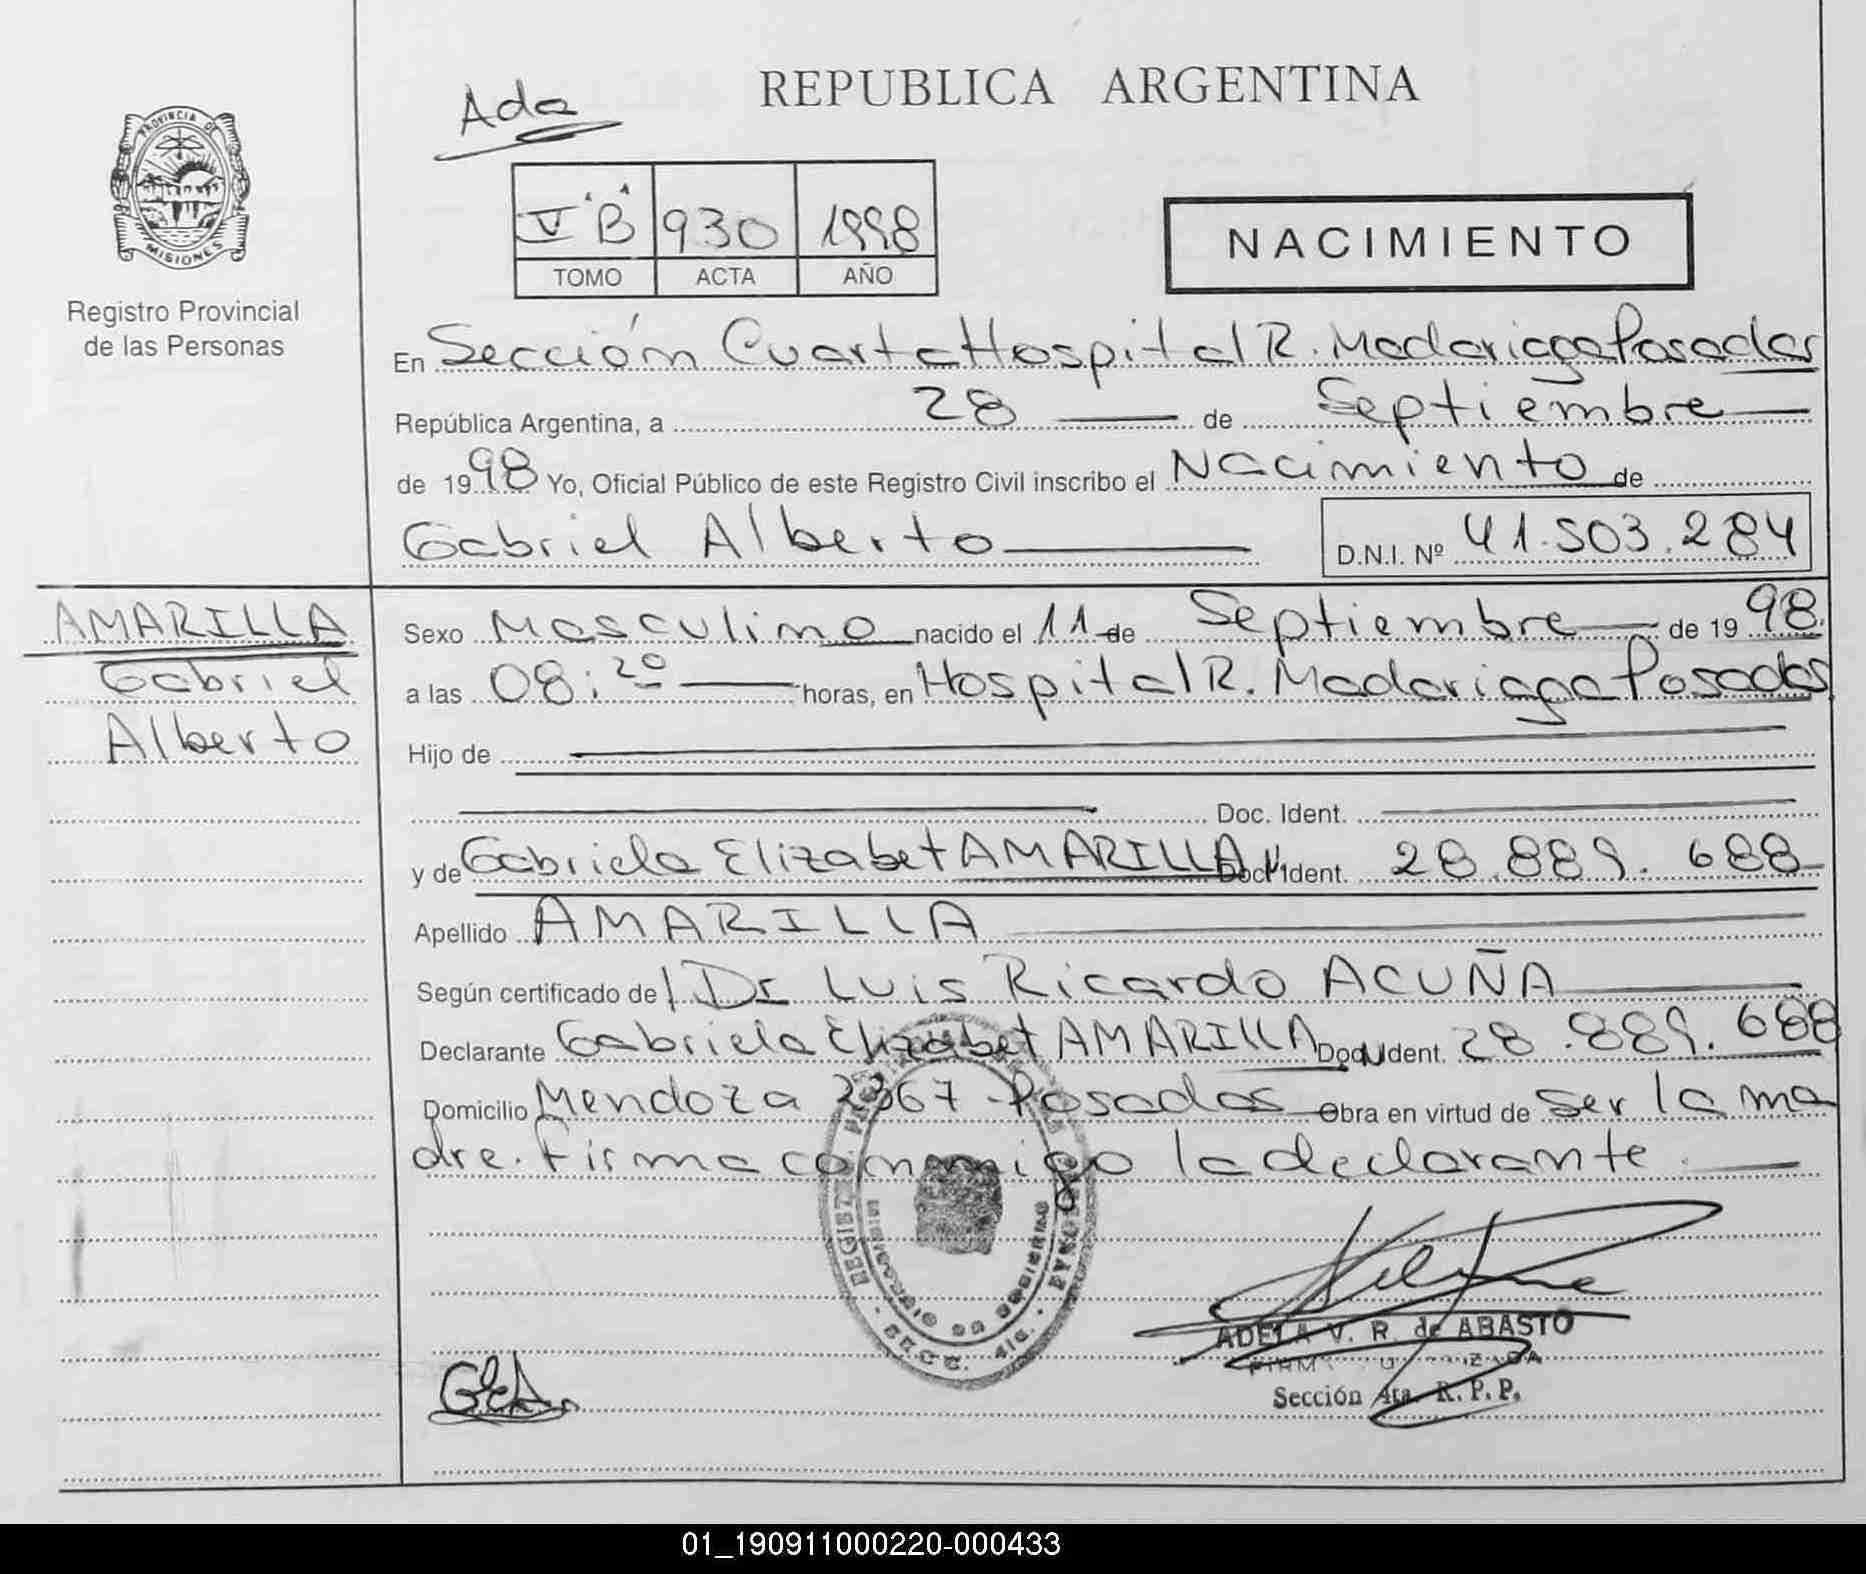 REPUBLICA ARGENTINA
Ada
PROVINCIA DE
MISIONES
Registro Provincial
de las Personas
V "B" 930 1998
TOMO ACTA AÑO
NACIMIENTO
En Sección Cuarta Hospital R. Madariaga Posadas
República Argentina, a 28 de Septiembre
de 1998 Yo, Oficial Público de este Registro Civil inscribo el Nacimiento de
Gabriel Alberto D.N.I. Nº 41.503.284
AMARILLA
Gabriel
Alberto
Sexo Masculino nacido el 11 de Septiembre de 1998
a las 08:20 horas, en Hospital R. Madariaga Posadas
Hijo de
Doc. Ident.
y de Gabriela Elizabet AMARILLA Doc. Ident. 28.889.688
Apellido AMARILLA
Según certificado de Dr Luis Ricardo ACUÑA
Declarante Gabriela Elizabet AMARILLA Doc. Ident. 28.889.688
Domicilio Mendoza 2367 Posadas Obra en virtud de ser la ma
dre. Firma conmigo la declarante.
ADELA V. R. de ABASTO
Sección 4ta. R. P. P.
GEA.
01_190911000220-000433